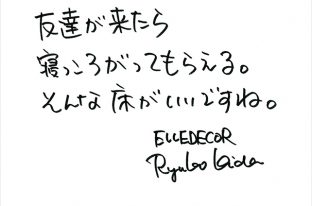 友達が来たら
寝っころがってもらえる。
そんな床がいいですね。
ELLEDECOR